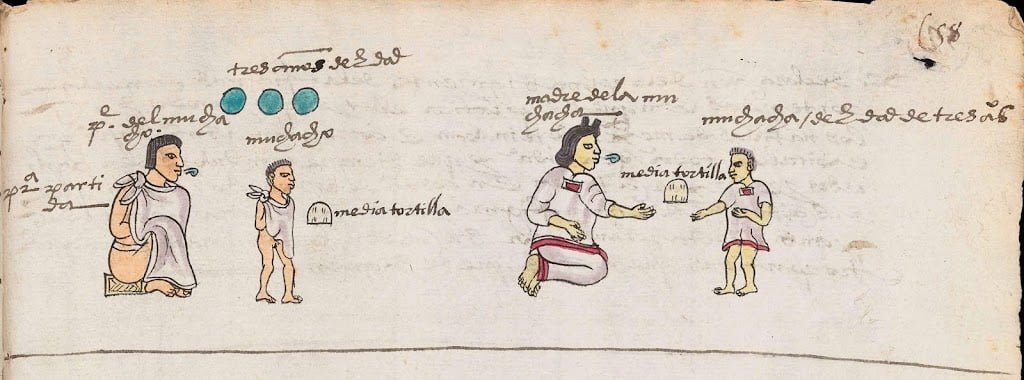 58
tres años de hedad
pe. del mucha
cho.
muchacho
pra. parti
da
media tortilla
madre de la mu
chacha
media tortilla
muchacha / de hedad de tres as